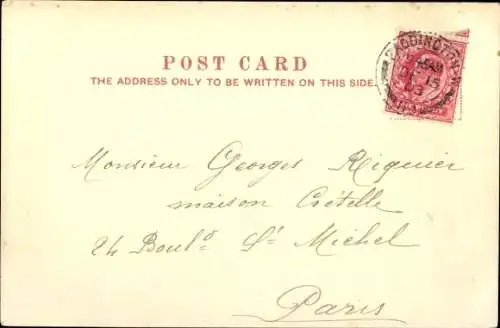 POST CARD
THE ADDRESS ONLY TO BE WRITTEN ON THIS SIDE.
PADDINGTON
15
03
Monsieur Georges Riquier
maison Crételle
24 Bould St Michel
Paris